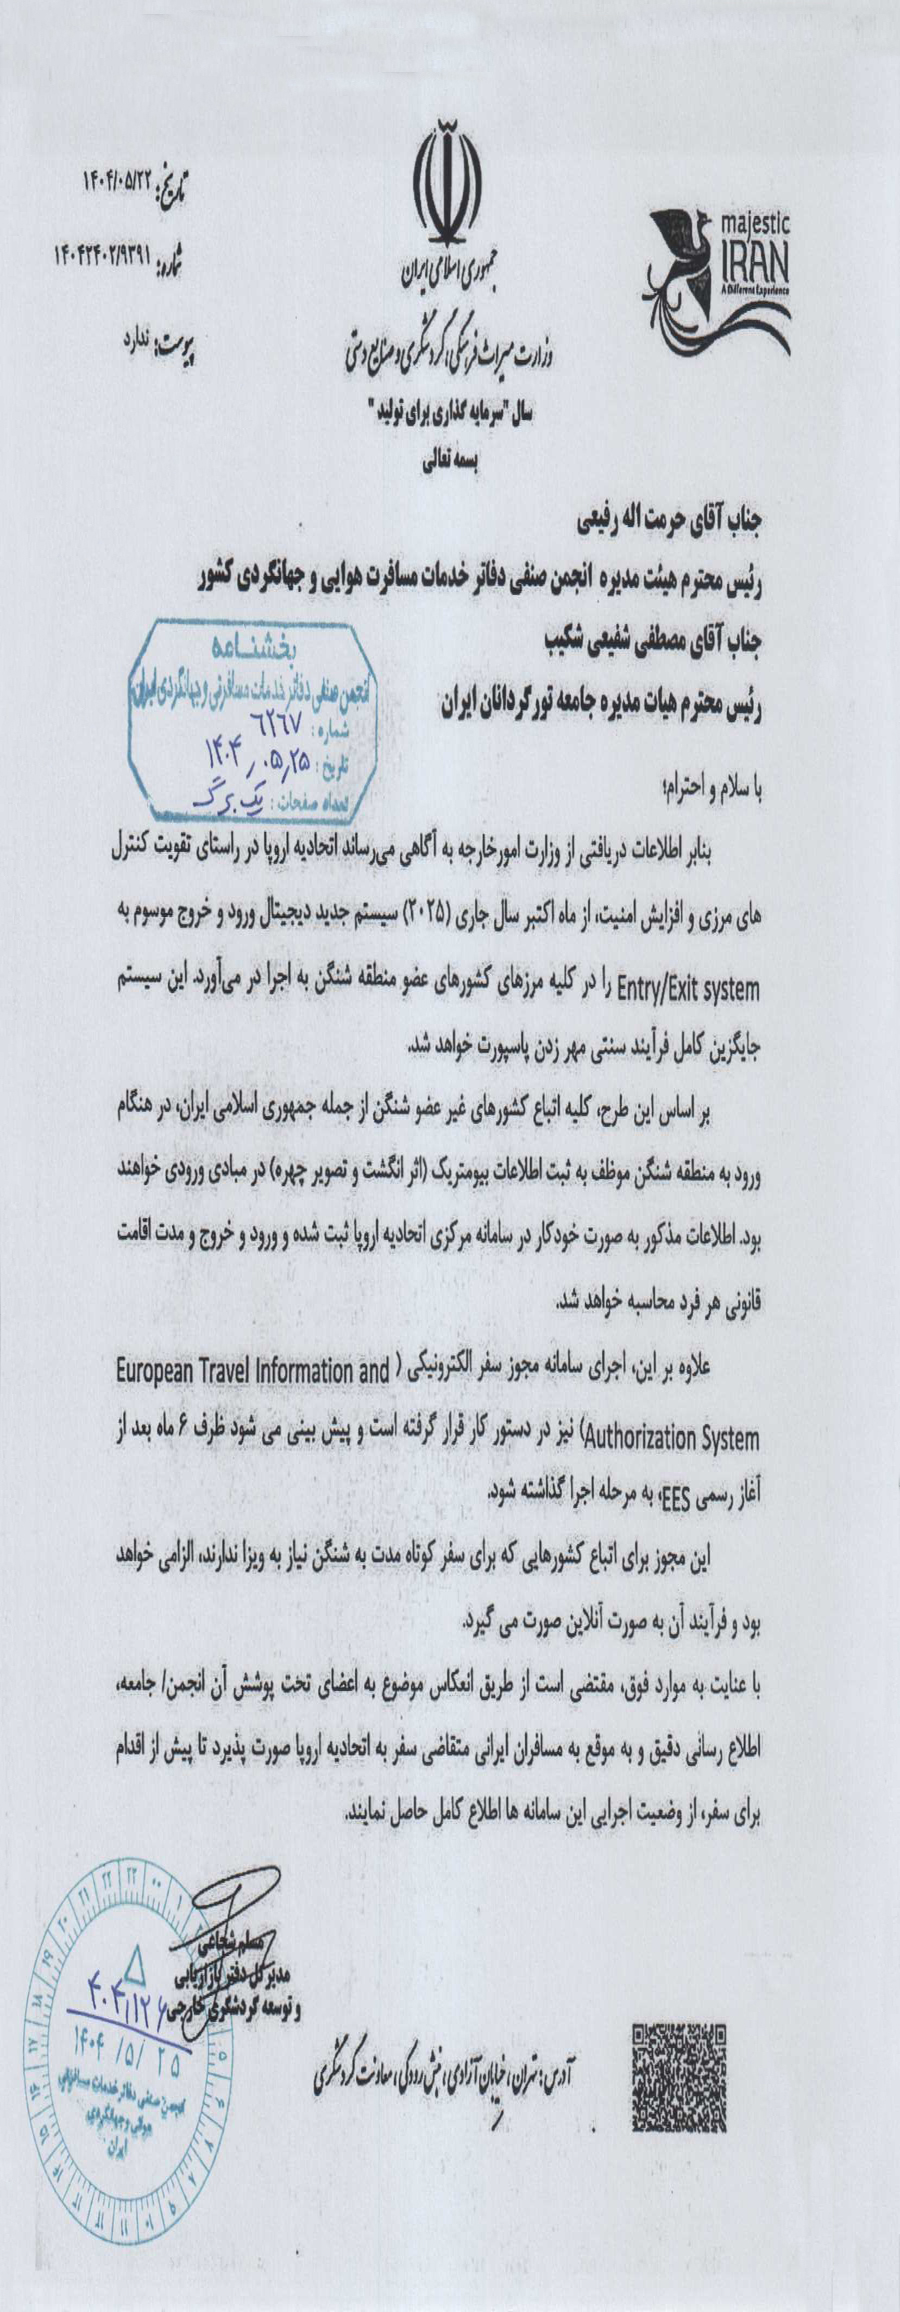 تاریخ: ۱۴۰۴/۰۵/۲۲
شماره: ۱۴۰۴۲۴۰۲/۹۳۹۱
پیوست: ندارد
majestic
IRAN
A Different Experience
جمهوری اسلامی ایران
وزارت میراث فرهنگی، گردشگری و صنایع دستی
سال "سرمایه گذاری برای تولید"
بسمه تعالی
جناب آقای حرمت اله رفیعی
رئیس محترم هیئت مدیره انجمن صنفی دفاتر خدمات مسافرت هوایی و جهانگردی کشور
جناب آقای مصطفی شفیعی شکیب
رئیس محترم هیات مدیره جامعه تورگردانان ایران
بخشنامه
انجمن صنفی دفاتر خدمات مسافرتی و جهانگردی ایران
شماره: ۶۲۶۷
تاریخ: ۱۴۰۴٫۰۵٫۲۵
تعداد صفحات: یک برگ
با سلام و احترام؛
بنابر اطلاعات دریافتی از وزارت امورخارجه به آگاهی می‌رساند اتحادیه اروپا در راستای تقویت کنترل
های مرزی و افزایش امنیت، از ماه اکتبر سال جاری (۲۰۲۵) سیستم جدید دیجیتال ورود و خروج موسوم به
Entry/Exit system را در کلیه مرزهای کشورهای عضو منطقه شنگن به اجرا در می‌آورد. این سیستم
جایگزین کامل فرآیند سنتی مهر زدن پاسپورت خواهد شد.
بر اساس این طرح، کلیه اتباع کشورهای غیر عضو شنگن از جمله جمهوری اسلامی ایران، در هنگام
ورود به منطقه شنگن موظف به ثبت اطلاعات بیومتریک (اثر انگشت و تصویر چهره) در مبادی ورودی خواهند
بود. اطلاعات مذکور به صورت خودکار در سامانه مرکزی اتحادیه اروپا ثبت شده و ورود و خروج و مدت اقامت
قانونی هر فرد محاسبه خواهد شد.
علاوه بر این، اجرای سامانه مجوز سفر الکترونیکی ( European Travel Information and
Authorization System) نیز در دستور کار قرار گرفته است و پیش بینی می شود ظرف ۶ ماه بعد از
آغاز رسمی EES، به مرحله اجرا گذاشته شود.
این مجوز برای اتباع کشورهایی که برای سفر کوتاه مدت به شنگن نیاز به ویزا ندارند، الزامی خواهد
بود و فرآیند آن به صورت آنلاین صورت می گیرد.
با عنایت به موارد فوق، مقتضی است از طریق انعکاس موضوع به اعضای تحت پوشش آن انجمن/ جامعه،
اطلاع رسانی دقیق و به موقع به مسافران ایرانی متقاضی سفر به اتحادیه اروپا صورت پذیرد تا پیش از اقدام
برای سفر، از وضعیت اجرایی این سامانه ها اطلاع کامل حاصل نمایند.
مسلم شجاعی
مدیر کل دفتر بازاریابی
و توسعه گردشگری خارجی
۱۴۰۴ /۵/ ۲۵
انجمن صنفی دفاتر خدمات مسافرتی
هوائی و جهانگردی
ایران
آدرس: تهران، خیابان آزادی، نبش رودکی، معاونت گردشگری